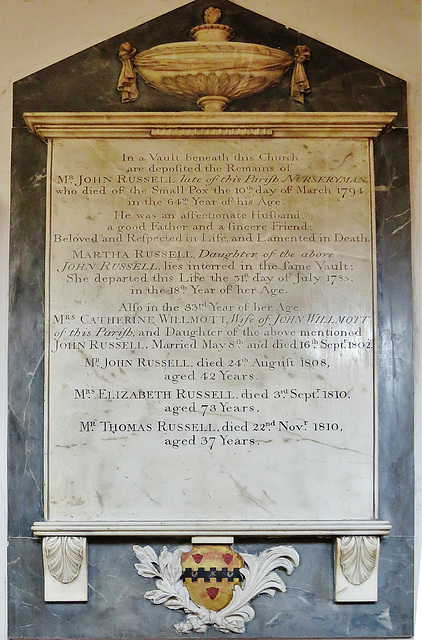 In a Vault beneath this Church
are deposited the Remains of
Mr. JOHN RUSSELL late of this Pariſh NURSERYMAN,
who died of the Small Pox the 10th day of March 1794
in the 64th Year of his Age.
He was an affectionate Husband,
a good Father and a ſincere Friend;
Beloved and Reſpected in Life, and Lamented in Death.
MARTHA RUSSELL, Daughter of the above
JOHN RUSSELL, lies interred in the ſame Vault:
She departed this Life the 31st day of July 1785.
in the 18th Year of her Age.
Alſo in the 33rd Year of her Age
Mrs CATHERINE WILLMOTT, Wife of JOHN WILLMOTT
of this Pariſh, and Daughter of the above mentioned
JOHN RUSSELL. Married May 8th and died 16th Septr. 1802
Mr. JOHN RUSSELL, died 24th Auguſt 1808,
aged 42 Years.
Mrs ELIZABETH RUSSELL, died 3rd Septr. 1810.
aged 73 Years.
Mr. THOMAS RUSSELL, died 22nd Novr. 1810,
aged 37 Years.